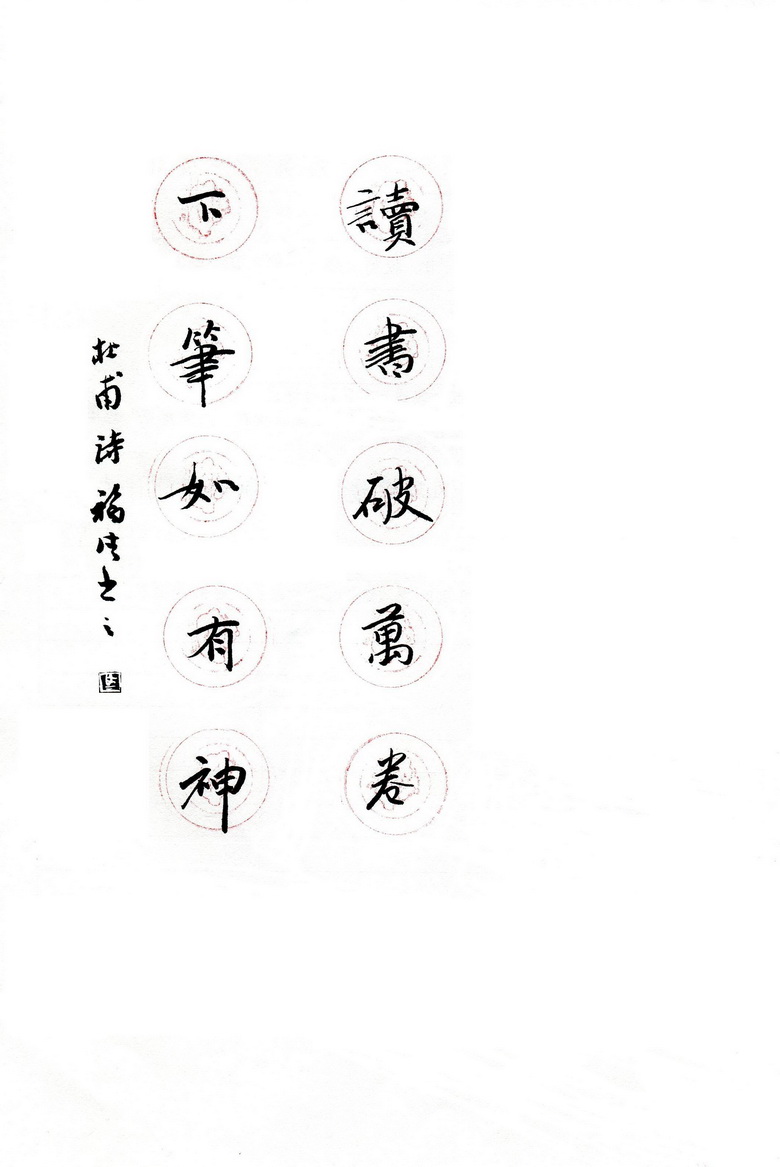 讀書破萬卷
下筆如有神
杜甫詩 福生书之